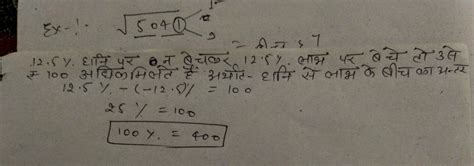 Ex -:- √5041
12.5% हानि पर न बेचकर 12.5% लाभ पर बेचे तो उसे
₹ 100 अधिक मिलते हैं अर्थात - हानि से लाभ के बीच का अन्तर
12.5% - (-12.5)% = 100
25% = 100
100% = 400